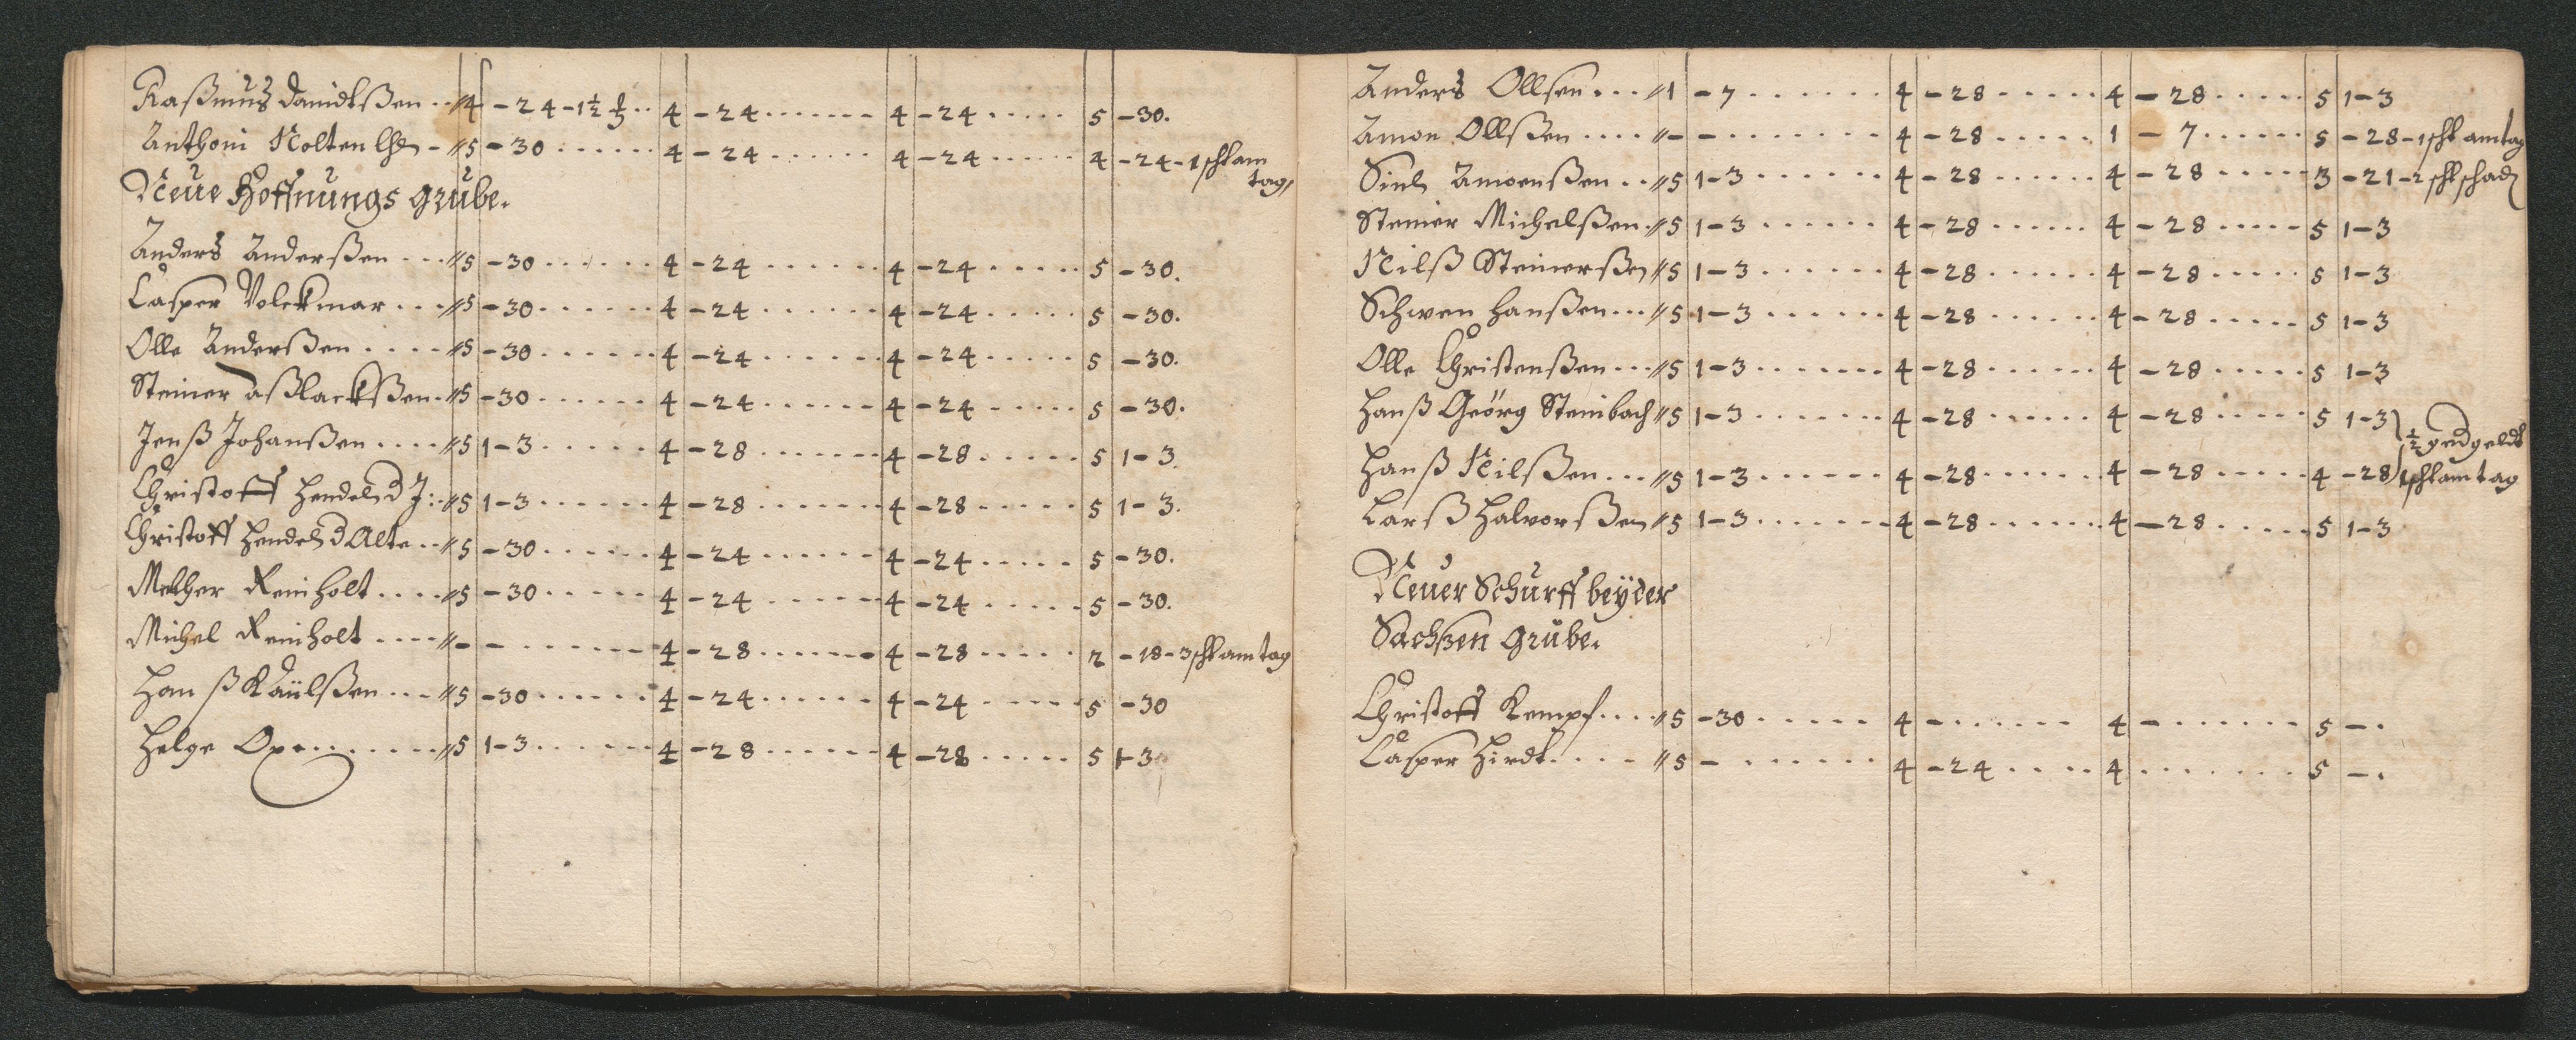 Raßmus Davidtßen .. 4 -24-1½ ß .. 4 -24 ....... 4 -24 ..... 5 -30.
Anthoni Nolten - 5 -30 ...... 4 -24 ...... 4 -24 ...... 4 -24-1 schl am
tag,
Neue Hoffnungs grube.
Anders Anderßen ... 5 -30 ...... 4 -24 ...... 4 -24 ..... 5 -30.
Casper Volckmar ... 5 -30 ...... 4 -24 ...... 4 -24 ..... 5 -30.
Olle Anderßen .... 5 -30 ...... 4 -24 ...... 4 -24 ..... 5 -30.
Steiner aßlackßen . 5 -30 ...... 4 -24 ....... 4 -24 ..... 5 -30.
Jenß Johanßen .... 5 1-3 ...... 4 -28 ....... 4 -28 ..... 5 1-3.
Christoff Hendel d J: 5 1-3 ...... 4 -28 ....... 4 -28 ..... 5 1-3.
Christoff Hendel d Alte .. 5 -30 ...... 4 -24 ...... 4 -24 ..... 5 -30.
Melcher Reinholt .... 5 -30 ..... 4 -24 ...... 4 -24 ..... 5 -30.
Michel Reinholt .... - - ....... 4 -28 ...... 4 -28 ..... 2 -18-3 schl am tag
Hanß Kaülßen ... 5 -30 ...... 4 -24 ...... 4 -24 ..... 5 -30
Helge Oxe ....... 5 1-3 ...... 4 -28 ...... 4 -28 ..... 5 1-3
Anders Ollsen ... 1 -7 ....... 4 -28 ..... 4 -28 ..... 5 1-3
Amon Ollßen .... - - ........ 4 -28 ..... 1 -7 ...... 5 -28-1 schl am tag
Siul Amonßen .. 5 1-3 ...... 4 -28 ...... 4 -28 ..... 3 -21-2 schl schad
Steiner Michelßen . 5 1-3 ...... 4 -28 ...... 4 -28 ..... 5 1-3
Nilß Steinerßen 5 1-3 ...... 4 -28 ...... 4 -28 ..... 5 1-3
Schwen Hanßen ... 5 1-3 ....... 4 -28 ...... 4 -28 ..... 5 1-3
Olle Christenßen ... 5 1-3 ....... 4 -28 ...... 4 -28 ..... 5 1-3
Hanß Geörg Steinbach 5 1-3 ...... 4 -28 ...... 4 -28 ..... 5 1-3
½ gedgeldt
Hanß Nilßen ... 5 1-3 ...... 4 -28 ...... 4 -28 ..... 4 -28 1 schl am tag
Larß Halvorßen 5 1-3 ....... 4 -28 ...... 4 -28 ..... 5 1-3
Neuer Schurff beÿder
Sachßen grube.
Christoff Kempf .... 5 -30 ...... 4 - ....... 4 - ....... 5 -.
Casper Hirdt .... 5 - ....... 4 -24 .... 4 ........ 5 -.